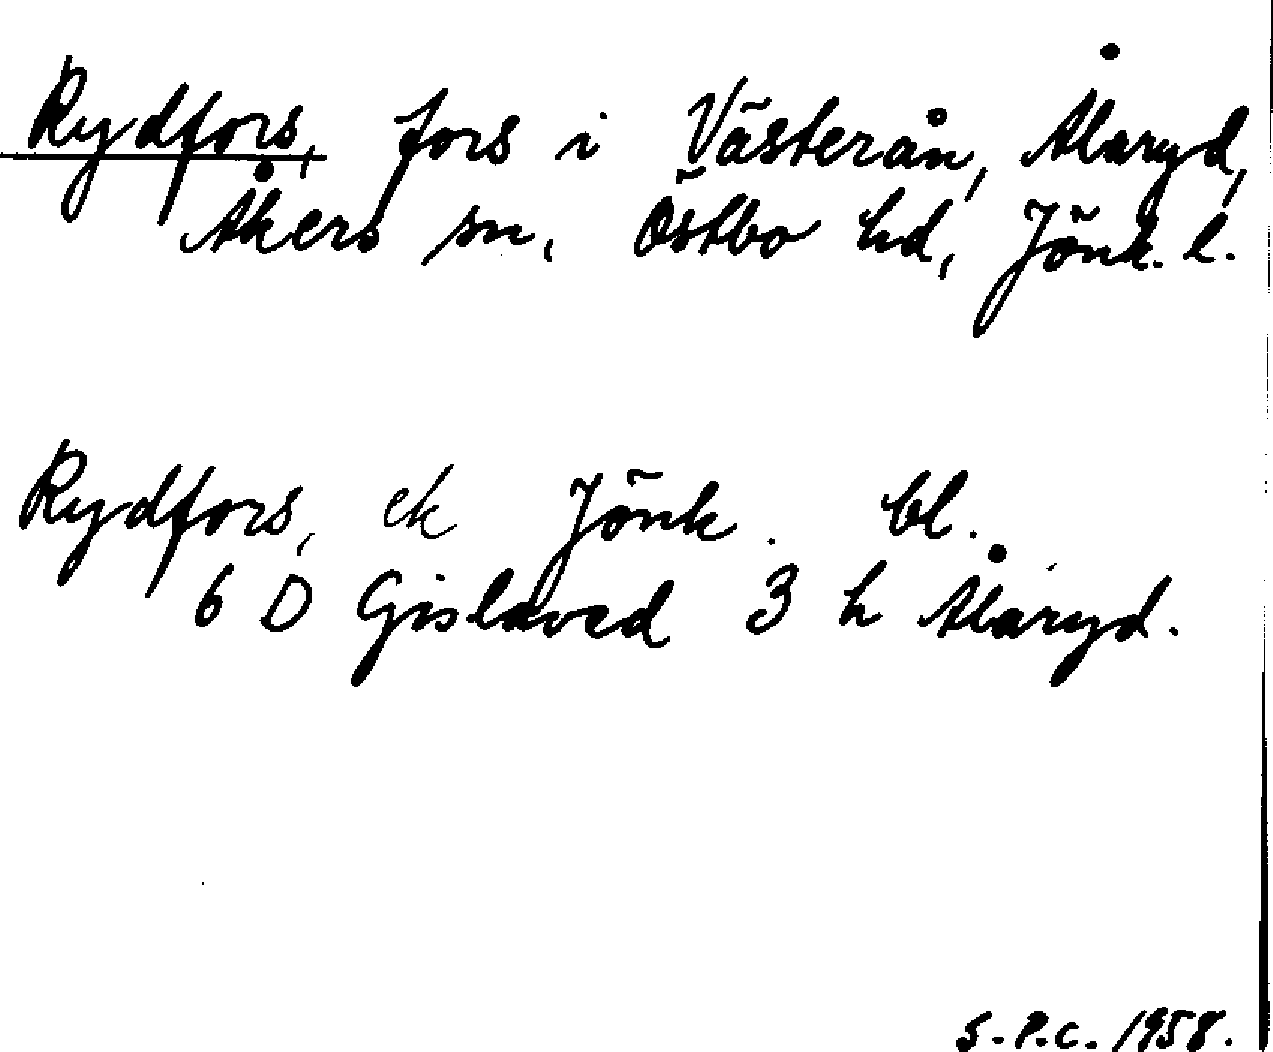 Rydfors, fors i Västerån, Ålaryd,
Åkers sn, Östbo hd, Jönk. l.
Rydfors, ek Jönk. bl.
6 D Gislaved 3 h Ålaryd.
S.P.C. 1958.